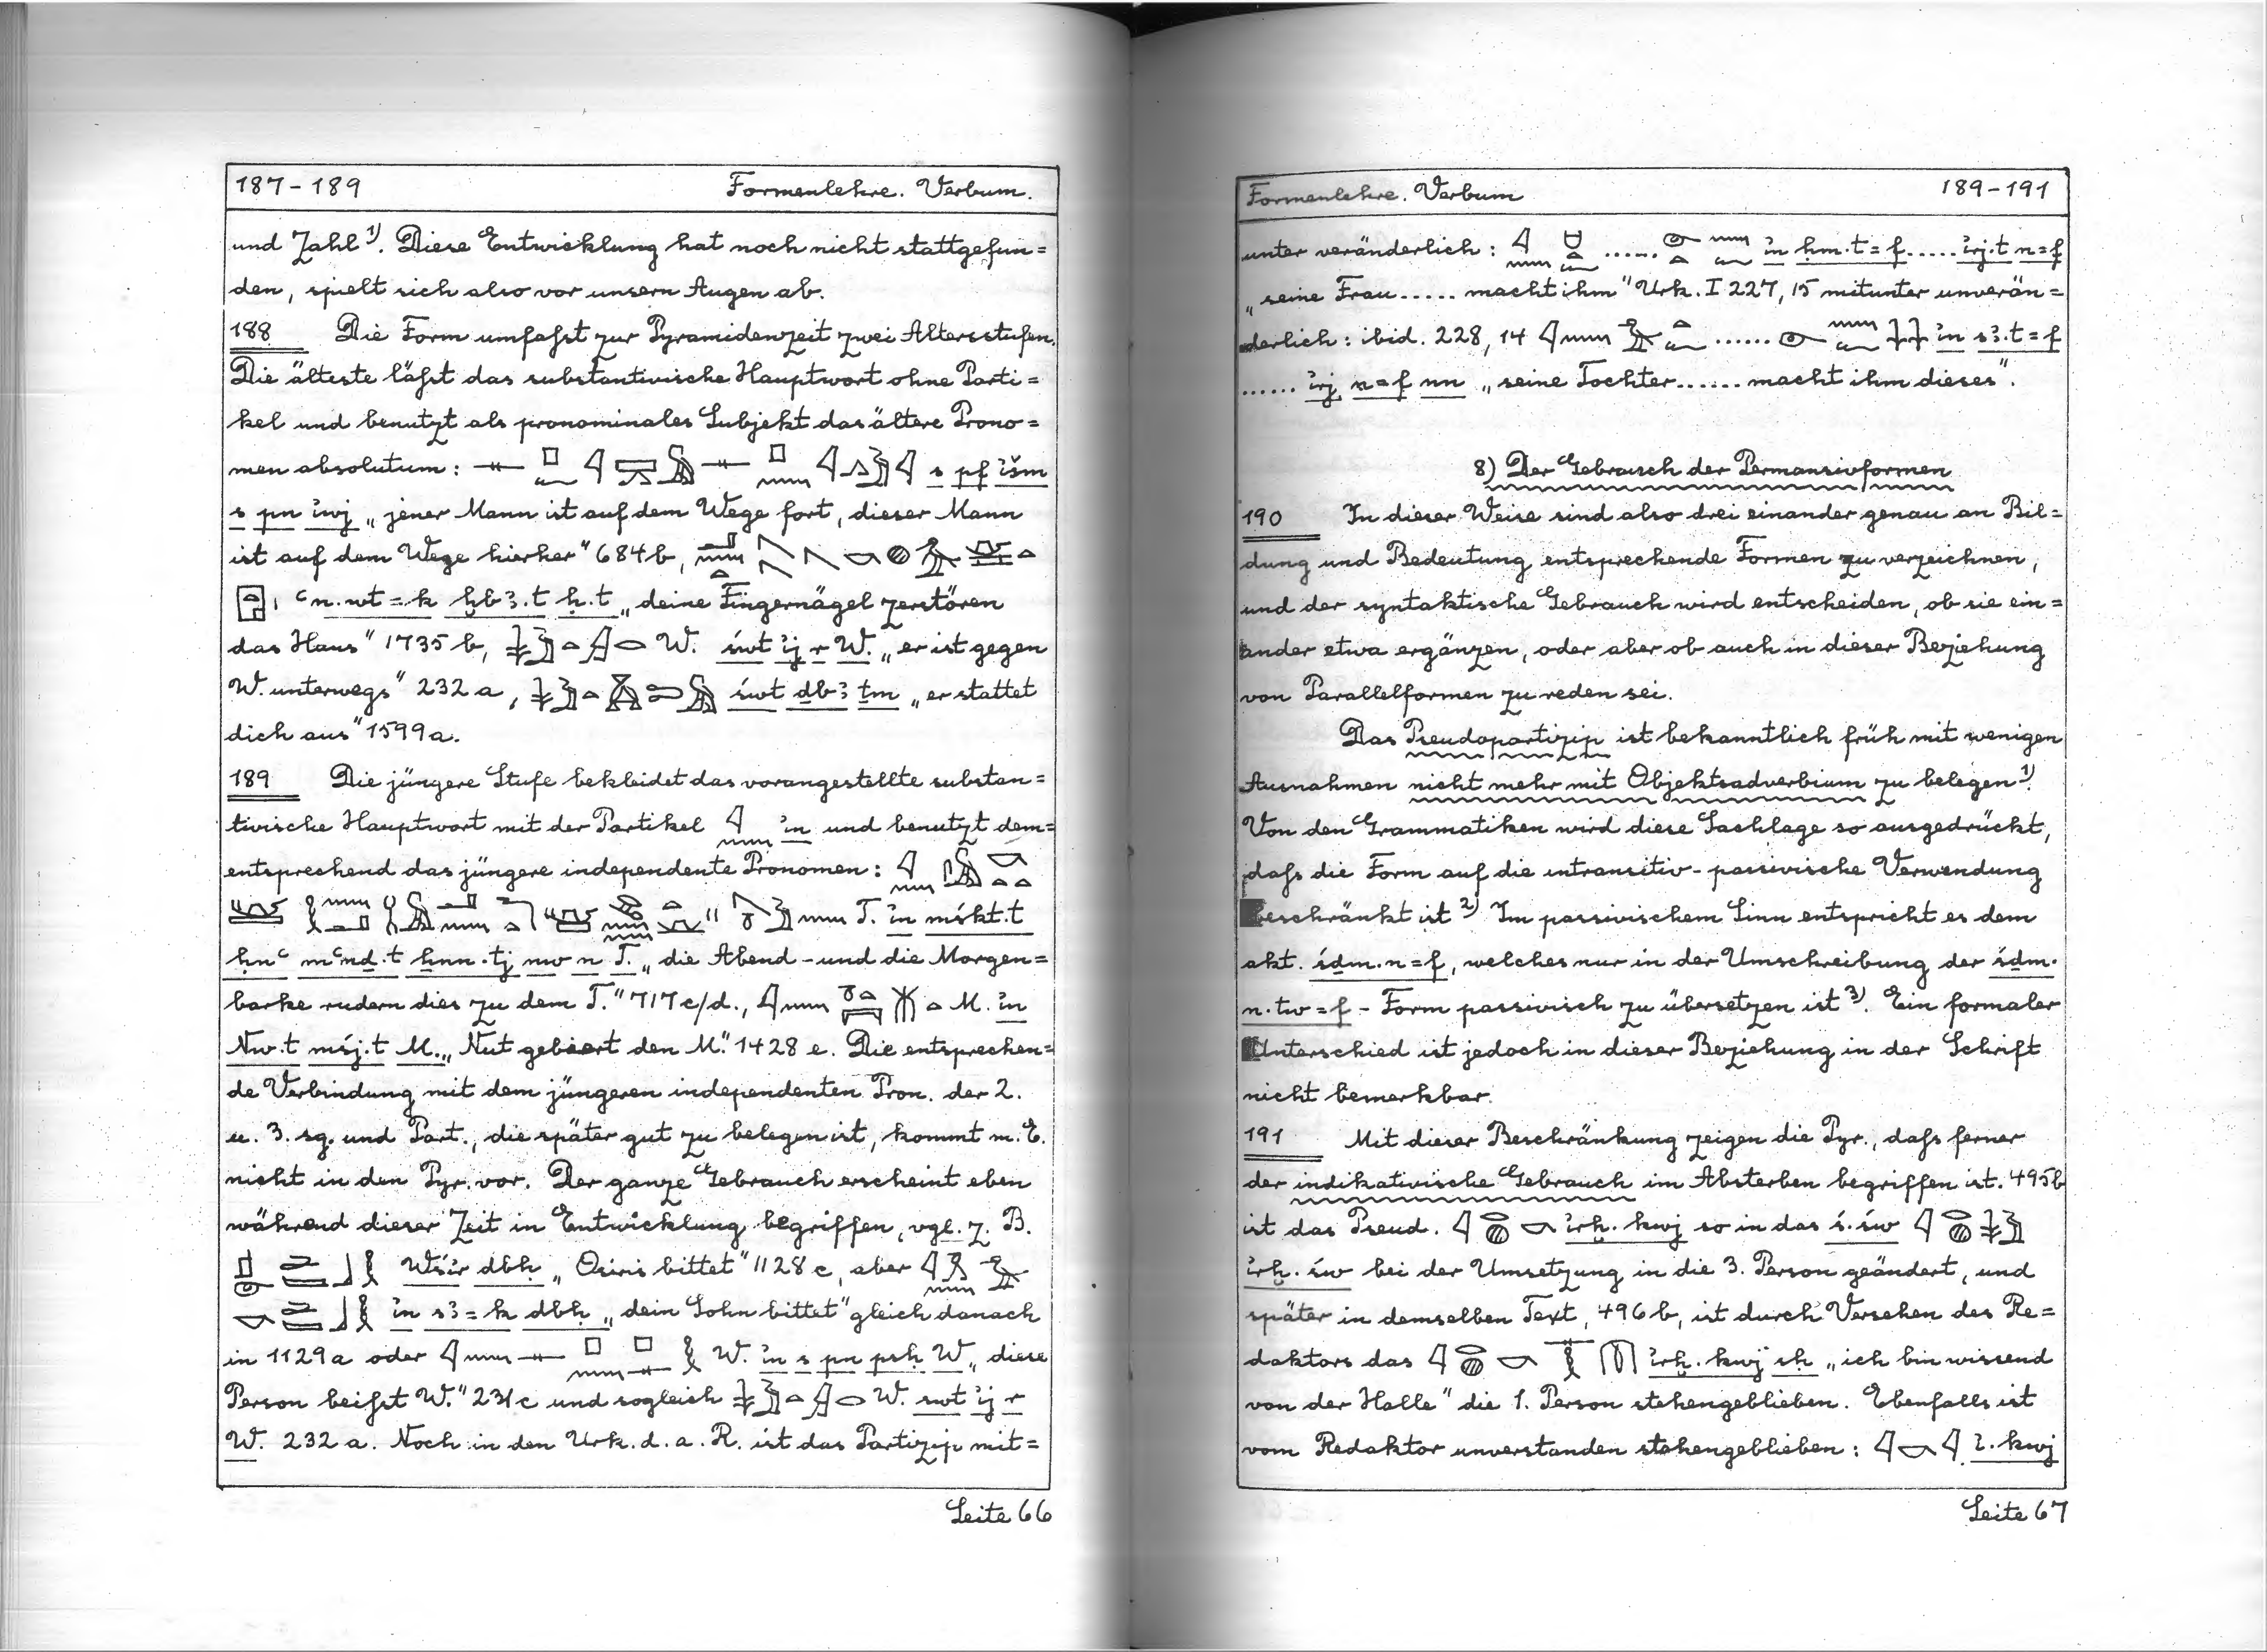 187-189 Formenlehre. Verbum.
und Zahl¹⁾. Diese Entwicklung hat noch nicht stattgefun=
den, spielt sich also vor unsern Augen ab.
188 Die Form umfaßt zur Pyramidenzeit zwei Altersstufen.
Die älteste läßt das substantivische Hauptwort ohne Parti=
kel und benutzt als pronominales Subjekt das ältere Prono=
men absolutum: s pf ı͗šm
s pn ı͗wj „jener Mann ist auf dem Wege fort, dieser Mann
ist auf dem Wege hierher" 684b,
ꜥn.wt=k ḫbꜣ.t ḥ.t „deine Fingernägel zerstören
das Haus" 1735b, W. św​t ı͗j r W. „er ist gegen
W. unterwegs" 232a, św​t ḏbꜣ ṯm „er stattet
dich aus" 1599a.
189 Die jüngere Stufe bekleidet das vorangestellte substan=
tivische Hauptwort mit der Partikel ı͗n und benutzt dem=
entsprechend das jüngere independente Pronomen:
T. ı͗n mśkt.t
ḥnꜥ mꜥnḏ.t ẖnn.tj nw n T. „die Abend- und die Morgen=
barke rudern dies zu dem T." 717c/d., M. ı͗n
Nw.t mśj.t M. „Nut gebiert den M." 1428e. Die entsprechen=
de Verbindung mit dem jüngeren independenten Pron. der 2.
u. 3. sg. und Part., die später gut zu belegen ist, kommt m. E.
nicht in den Pyr. vor. Der ganze Gebrauch erscheint eben
während dieser Zeit in Entwicklung begriffen, vgl. z. B.
Wśı͗r dbḥ „Osiris bittet" 1128c, aber
ı͗n sꜣ=k dbḥ „dein Sohn bittet" gleich danach
in 1129a oder W. ı͗n s pn psḥ W „diese
Person beißt W." 231c und sogleich W. swt ı͗j r
W. 232a. Noch in den Urk. d. a. R. ist das Partizip mit=
Seite 66
Formenlehre. Verbum 189-191
unter veränderlich: ..... ı͗n ḥm.t=f ..... ı͗rj.t n=f
„seine Frau ..... macht ihm" Urk. I 227, 15 mitunter unverän=
derlich: ibid. 228, 14 ...... ı͗n sꜣ.t=f
...... ı͗rj n=f nn „seine Tochter ...... macht ihm dieses".
8) Der Gebrauch der Permansivformen
190 In dieser Weise sind also drei einander genau an Bil=
dung und Bedeutung entsprechende Formen zu verzeichnen,
und der syntaktische Gebrauch wird entscheiden, ob sie ein=
ander etwa ergänzen, oder aber ob auch in dieser Beziehung
von Parallelformen zu reden sei.
Das Pseudopartizip ist bekanntlich früh mit wenigen
Ausnahmen nicht mehr mit Objektsadverbium zu belegen¹⁾.
Von den Grammatiken wird diese Sachlage so ausgedrückt,
daß die Form auf die intransitiv-passivische Verwendung
beschränkt ist²⁾ Im passivischem Sinn entspricht es dem
akt. śḏm.n=f, welches nur in der Umschreibung der śḏm.
n.tw=f - Form passivisch zu übersetzen ist³⁾. Ein formaler
Unterschied ist jedoch in dieser Beziehung in der Schrift
nicht bemerkbar.
191 Mit dieser Beschränkung zeigen die Pyr., daß ferner
der indikativische Gebrauch im Absterben begriffen ist. 495b
ist das Pseud. ı͗rḫ.kwj so in das ś.św
ı͗rḫ.św bei der Umsetzung in die 3. Person geändert, und
später in demselben Text, 496b, ist durch Versehen des Re=
daktors das ı͗rḫ.kwj sḥ „ich bin wissend
von der Halle" die 1. Person stehengeblieben. Ebenfalls ist
vom Redaktor unverstanden stehengeblieben: ı͗.kwj
Seite 67